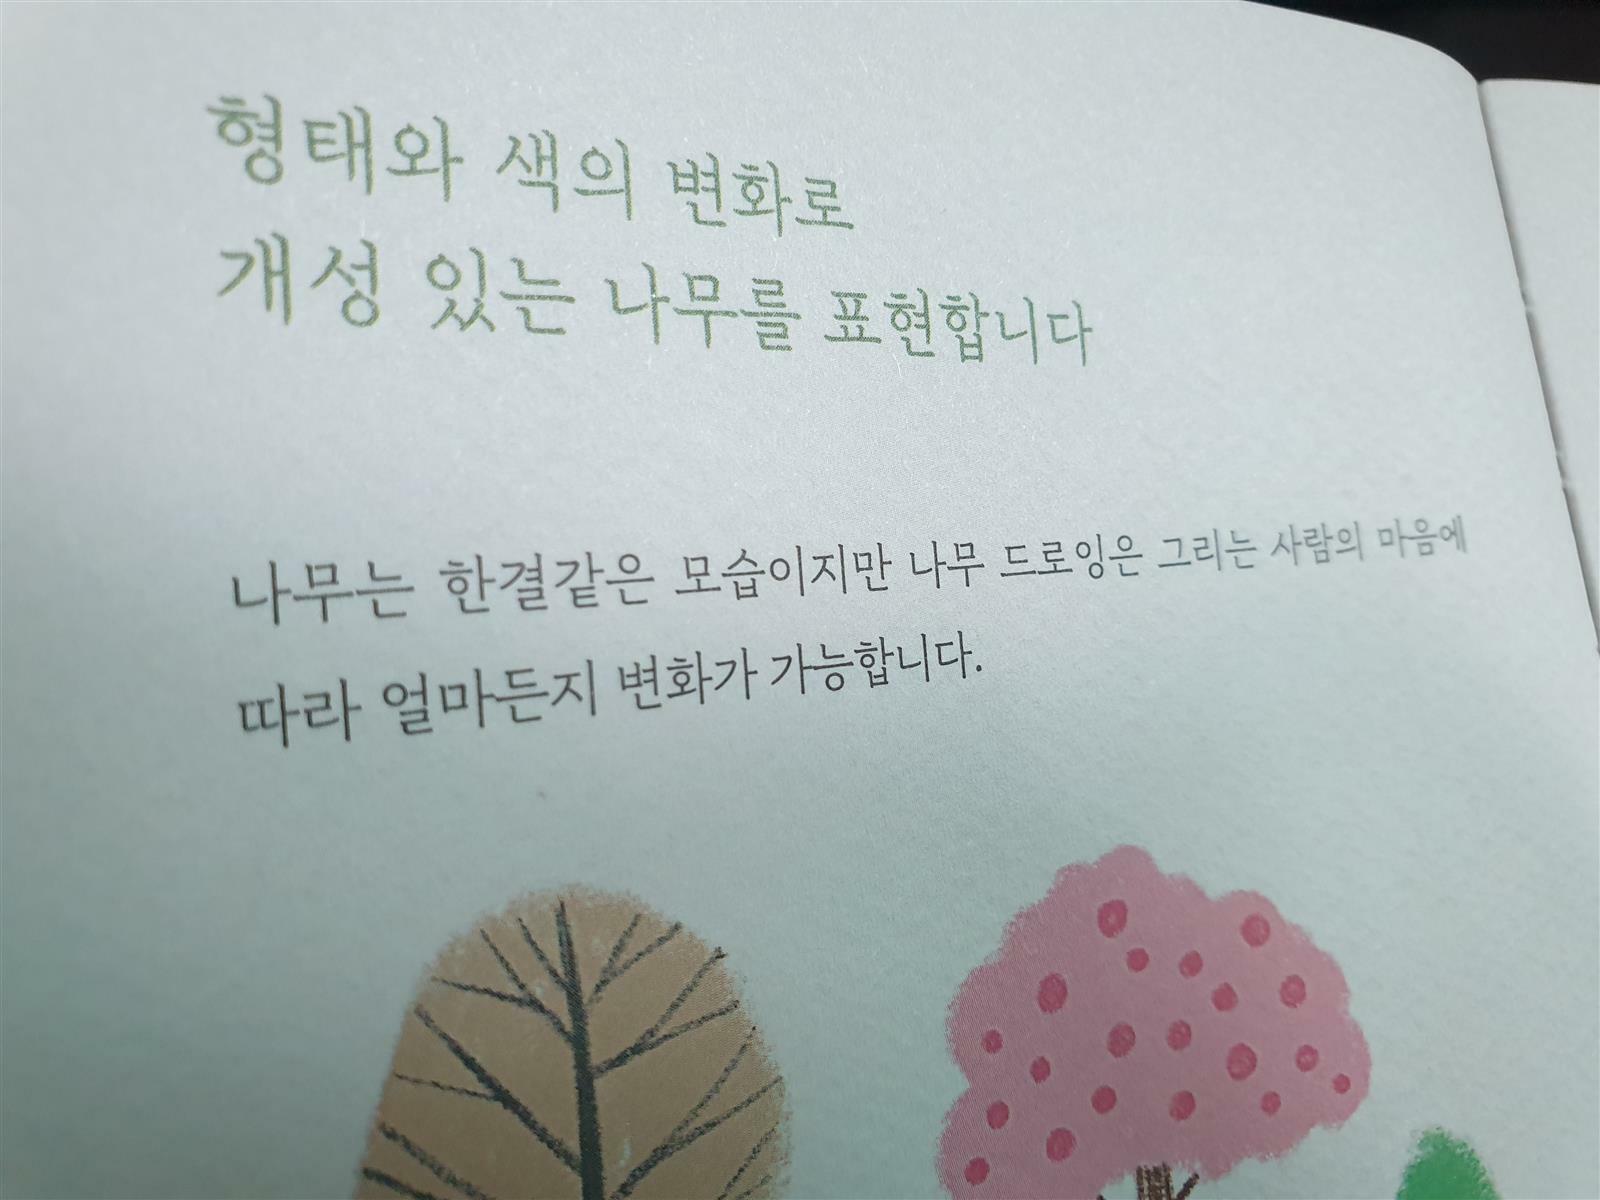 형태와 색의 변화로
개성 있는 나무를 표현합니다
나무는 한결같은 모습이지만 나무 드로잉은 그리는 사람의 마음에
따라 얼마든지 변화가 가능합니다.